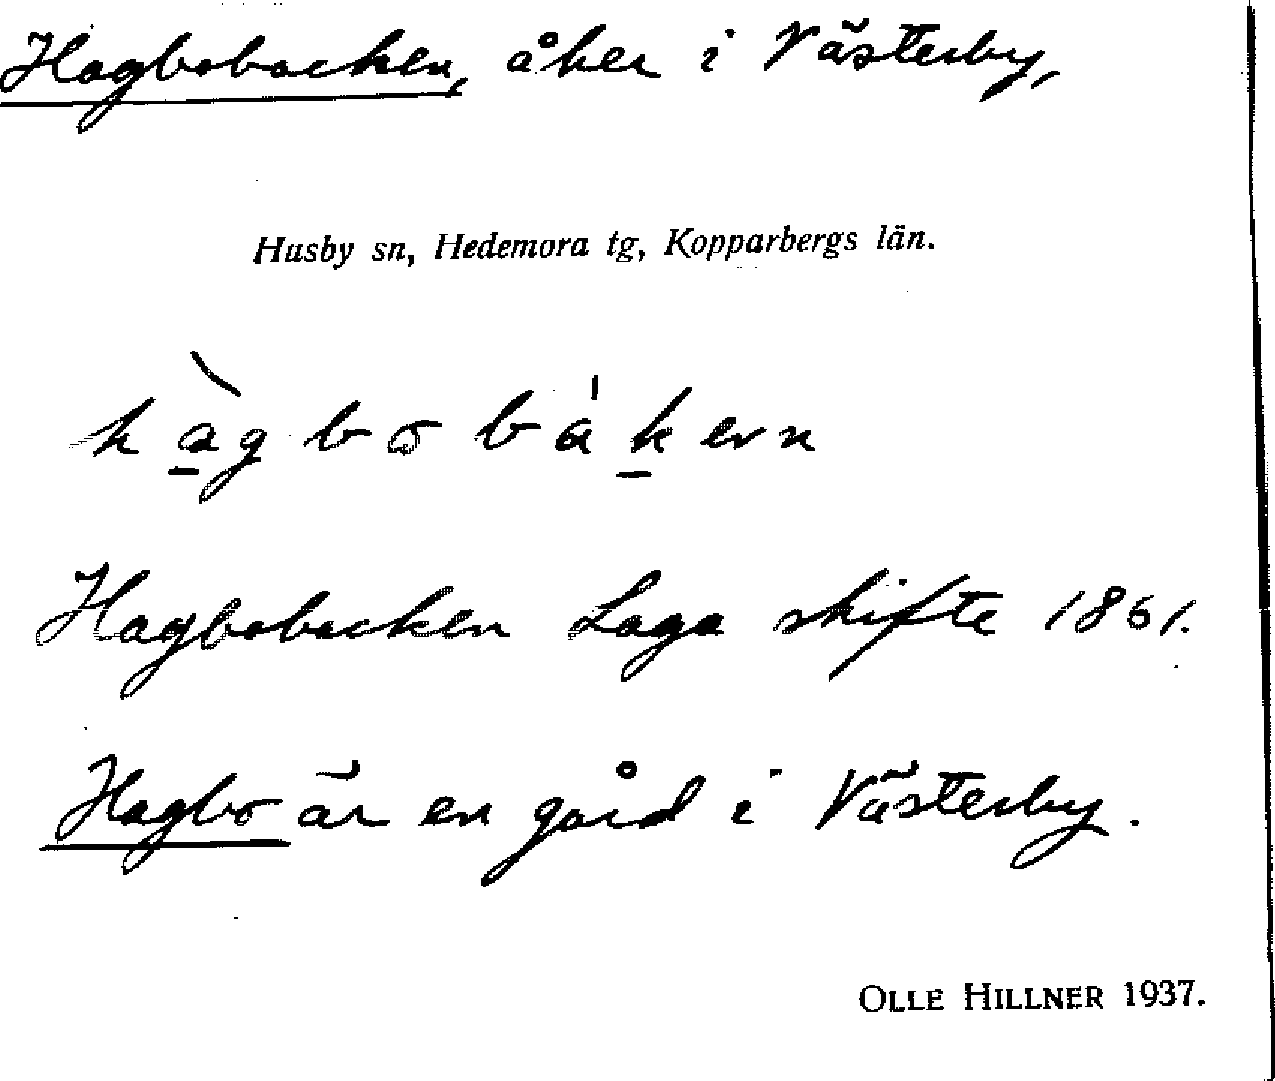 Hagbobacken, åker i Västerby,
Husby sn, Hedemora tg, Kopparbergs län.
hàgbobákern
Hagbobacken Laga skifte 1861.
Hagbo är en gård i Västerby.
OLLE HILLNER 1937.